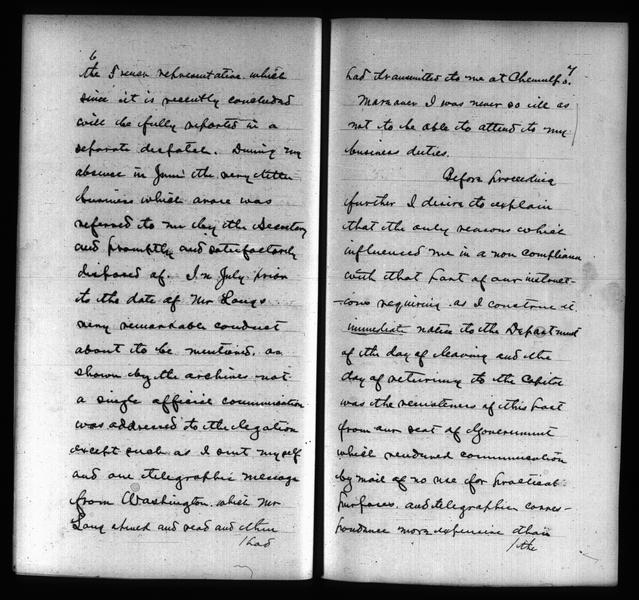 6
the French representative which
since it is recently concluded
will be fully reported in a
separate despatch. During my
absence in June the very little
business which arose was
referred to me by the Secretary
and promptly and satisfactorily
disposed of. In July prior
to the date of Mr Long's
very remarkable conduct
about to be mentioned, as
shown by the archives not
a single official communication
was addressed to the legation
except such as I sent myself
and one telegraphic message
from Washington which Mr
Long opened and read and then
/had
7
had transmitted to me at Chemulpo.
Moreover I was never so ill as
not to be able to attend to my
business duties.
Before proceeding
further I desire to explain
that the only reasons which
influenced me in a non compliance
with that part of our instruct-
-ions requiring as I construe it
immediate notice to the Department
of the day of leaving and the
day of returning to the Capital
was the remoteness of this post
from our seat of Government
which rendered communication
by mail of no use for practical
purposes and telegraphic corres-
pondence more expensive than
/the